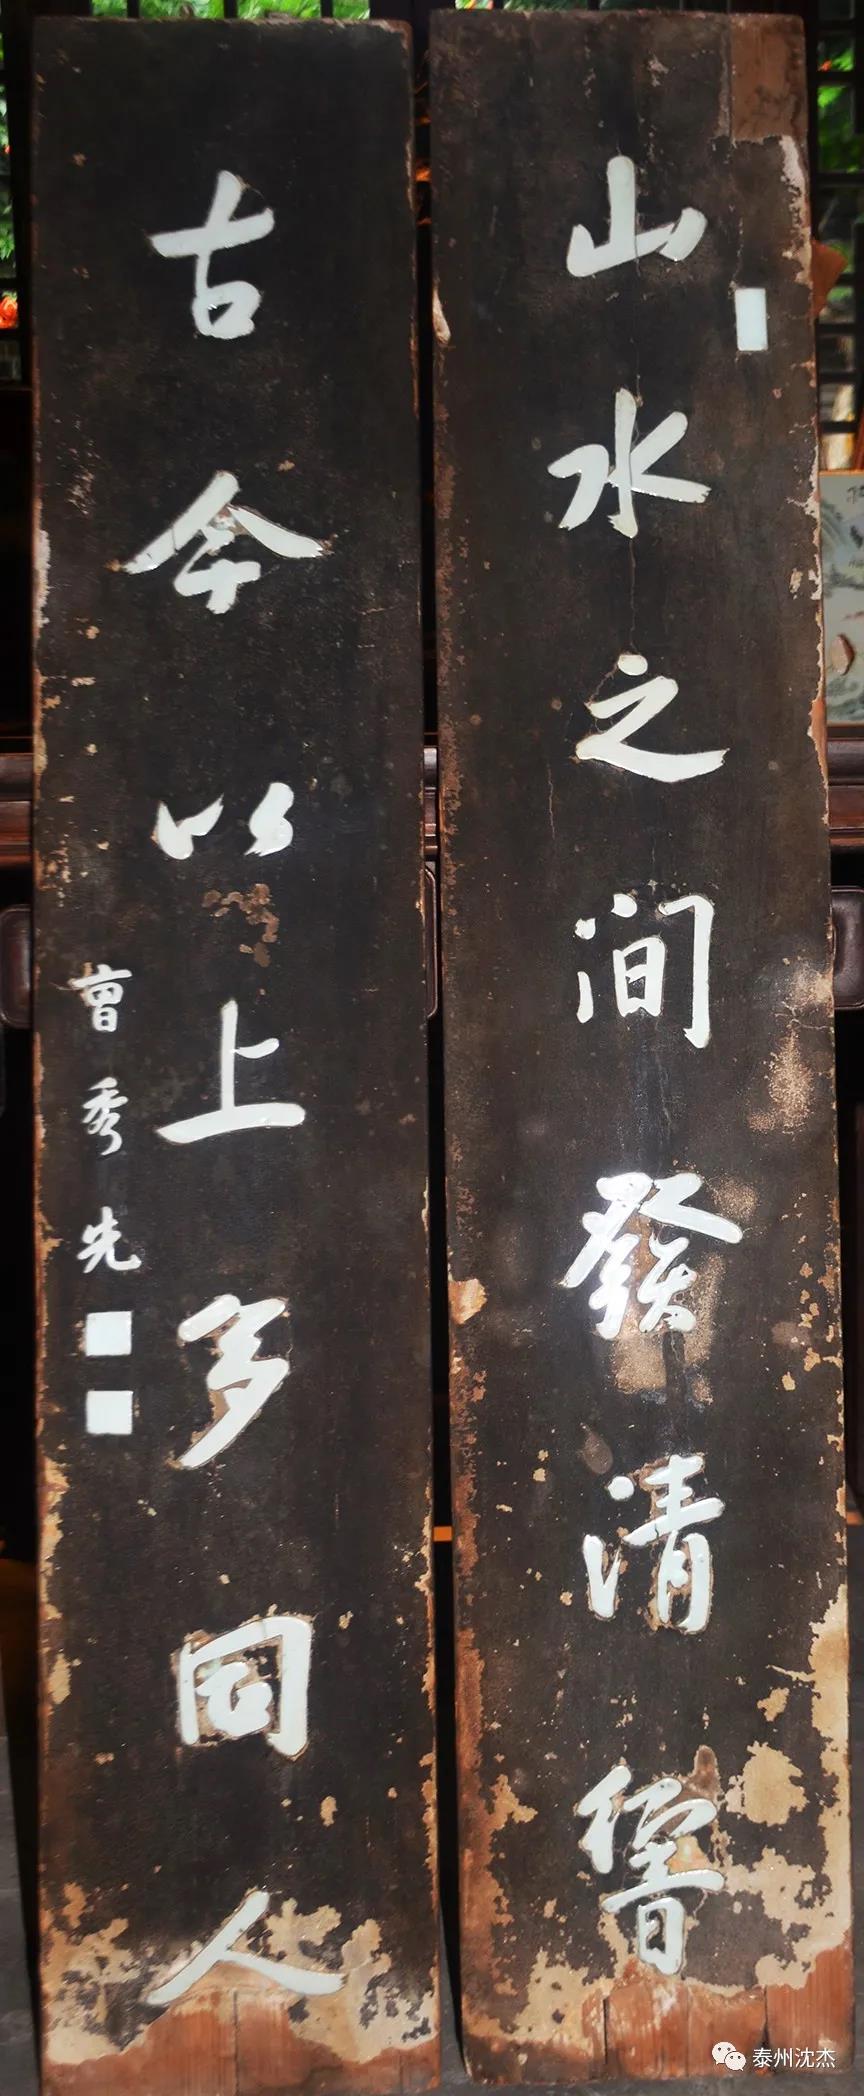 山水之间發清響
古今以上多同人
曾秀先
泰州沈杰